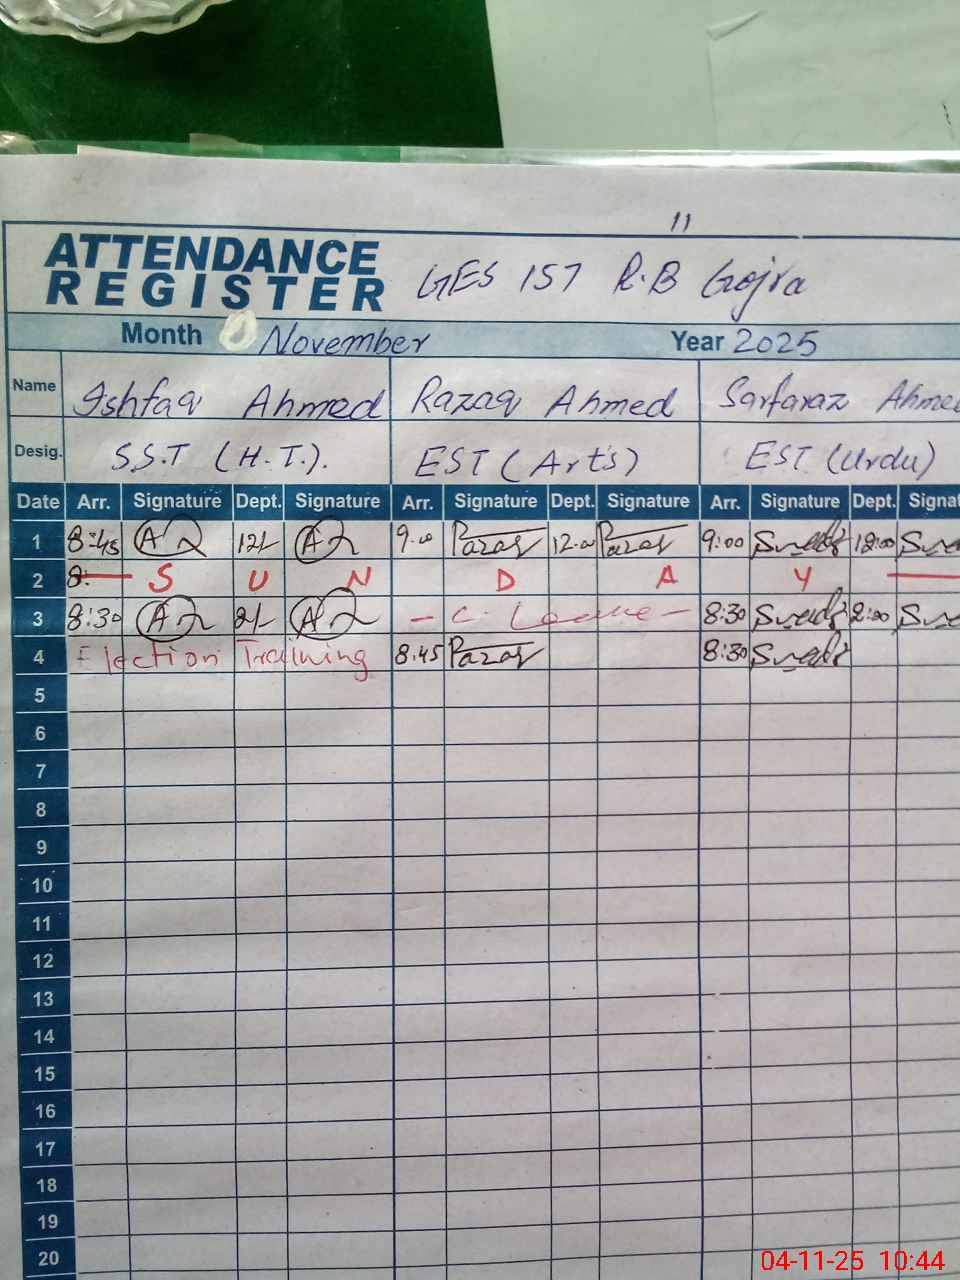 11
ATTENDANCE
REGISTER GES 157 R.B Gojra
Month November Year 2025
Name Ishfaq Ahmed Razaq Ahmed Sarfaraz Ahme
Desig. S.S.T (H.T.). EST (Arts) EST (Urdu)
Date Arr. Signature Dept. Signature Arr. Signature Dept. Signature Arr. Signature Dept. Signat
1 8:45 12/- 9.00 Razaq 12.00 Razaq 9:00 12:00
2 8: S U N D A Y
3 8:30 2/- - C. Leave - 8:30 2:00
4 Election Training 8.45 Razaq 8:30
5
6
7
8
9
10
11
12
13
14
15
16
17
18
19
20
04-11-25 10:44